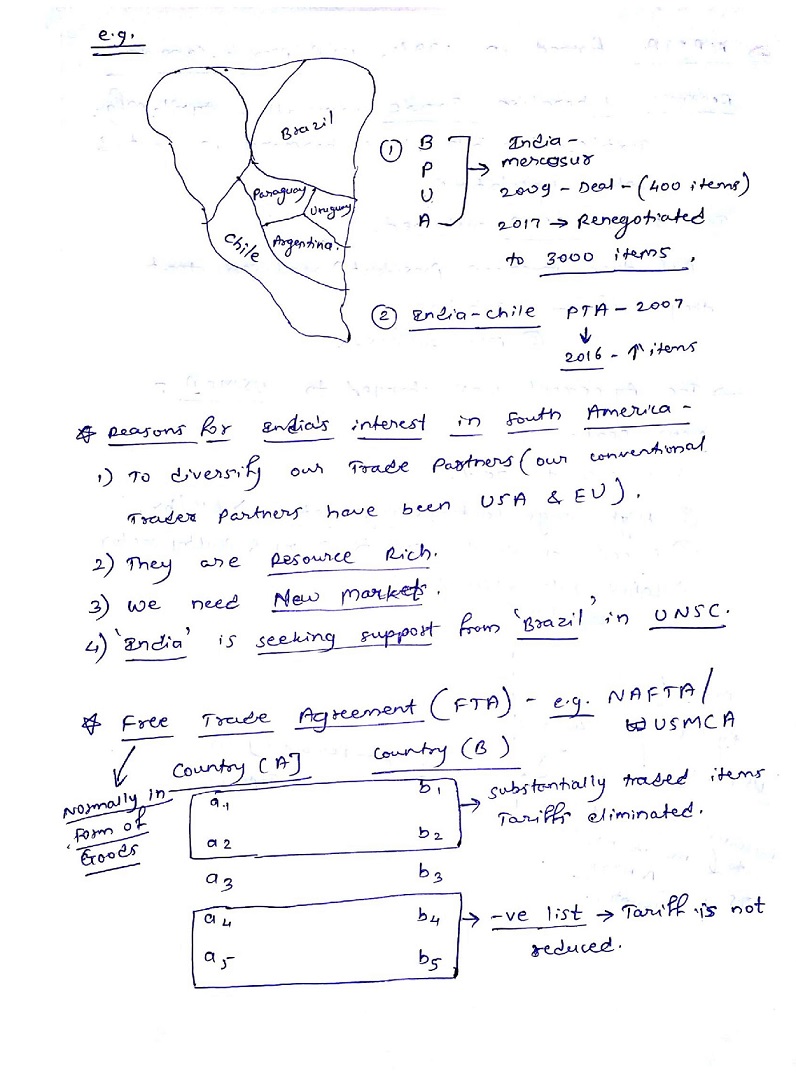 e.g.
Brazil
Paraguay
Uruguay
Chile
Argentina.
① B
P
U
A
India -
mercosur
2009 - Deal - (400 items)
2017 → Renegotiated
to 3000 items.
② India - chile PTA - 2007
↓
2016 - ↑ items
* Reasons for India's interest in South America -
1) To diversify our Trade Partners (our conventional
Trader partners have been USA & EU).
2) They are Resource Rich.
3) We need New Markets.
4) 'India' is seeking support from 'Brazil' in UNSC.
* Free Trade Agreement (FTA) - e.g. NAFTA/
USMCA
Normally in
form of
Goods
Country (A] Country (B)
a1 b1
a2 b2
→ substantially traded items
Tariffs eliminated.
a3 b3
a4 b4
a5 b5
→ -ve list → Tariff is not
reduced.